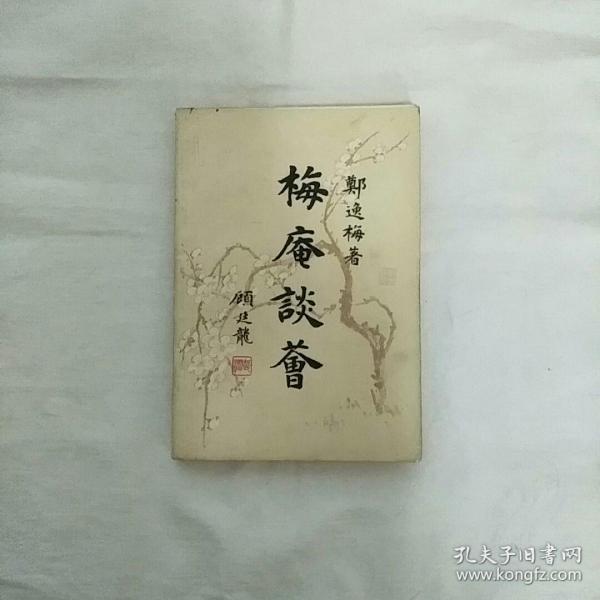 鄭逸梅著
梅庵談薈
顧廷龍
孔夫子旧书网
www.kongfz.com